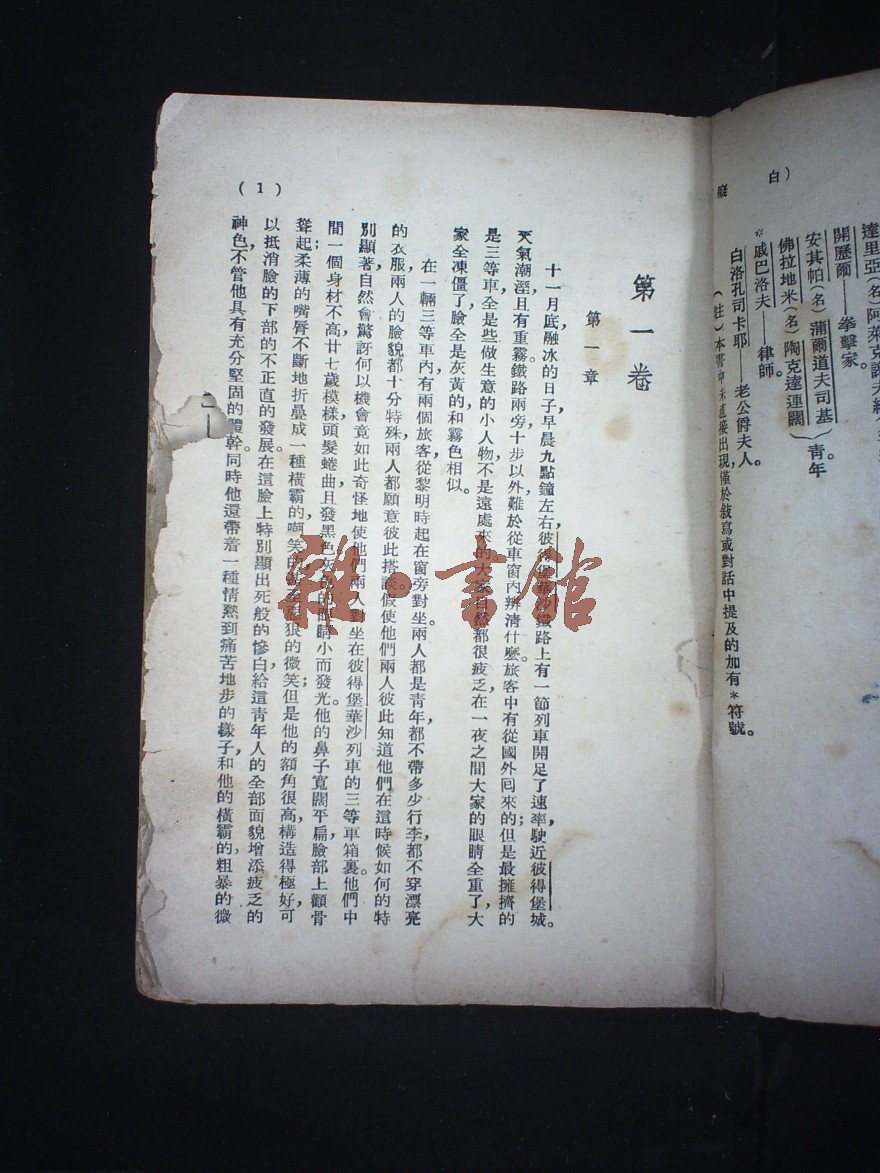 白）
達里亞（名）阿萊克謝夫
開歷爾——拳擊家。
安其帕（名）蒲爾道夫司基
佛拉地米（名）陶克達連闊｝青年
*戚巴洛夫——律師。
白洛孔司卡耶——老公爵夫人。
（註）本書中未直接出現，僅於敍寫或對話中提及的加有*符號。
第一卷
第一章
十一月底，融冰的日子，早晨九點鐘左右，彼得堡華沙鐵路上有一節列車開足了速率，駛近彼得堡城。
天氣潮溼，且有重霧，鐵路兩旁，十步以外，難於從車窗內辨清什麼。旅客中有從國外囘來的；但是最擁擠的
是三等車，全是些做生意的小人物，不是遠處來的。大家自然都很疲乏，在一夜之間大家的眼睛全重了，大
家全凍僵了，臉全是灰黃的，和霧色相似。
在一輛三等車內，有兩個旅客從黎明時起在窗旁對坐，兩人都是青年，都不帶多少行李，都不穿漂亮
的衣服，兩人的臉貌都十分特殊，兩人都願意彼此搭談。假使他們兩人彼此知道他們在這時候如何的特
別顯著，自然會驚訝何以機會竟如此奇怪地使他們兩人對坐在彼得堡華沙列車的三等車箱裏。他們中
間一個身材不高，廿七歲模樣，頭髮蜷曲，且發黑色，灰色的眼睛小而發光。他的鼻子寬闊平扁，臉部上顴骨
聳起；柔薄的嘴脣不斷地折疊成一種橫霸的嘲笑的，甚至惡狠的微笑；但是他的額角很高，構造得極好，可
以抵消臉的下部的不正直的發展。在這臉上特別顯出死般的慘白，給這青年人的全部面貌增添疲乏的
神色，不管他具有充分堅固的體幹，同時他還帶着一種情熱到痛苦地步的樣子，和他的橫霸的，粗暴的微
( 1 )
雜·書館